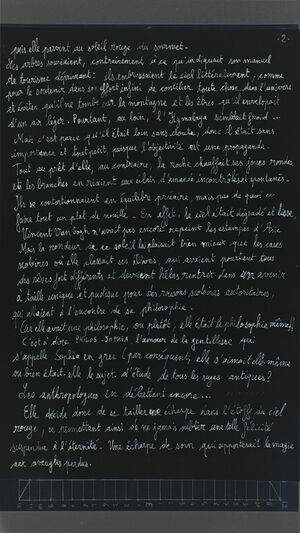 -2-
puis elle parvint au soleil rouge du sommet.
Les arbres souriaient, contrairement à ce qu'indiquait son manuel
de tourisme déprimant : ils embrassaient le ciel littéralement, comme
pour le soutenir dans son effort infini de concilier toute chose dans l'univers
et éviter qu'il ne tombe sur la montagne et les êtres qu'il enveloppait
d'un air léger. Pourtant, au loin, l'Hymalaya semblait froid...
Mais c'est parce qu'il était loin sans doute, donc il était sans
importance et tout petit, puisque l'objectivité est une propagande.
Tout au prêt d'elle, au contraire, la roche chauffait ses joues rondes
et les branches en riaient aux éclats d'amande incontrôlés et spontanés.
Ils se contorsionnaient en équilibre précaire, mais pas de quoi en
faire tout un plat de nouille. En effet, le ciel était dégradé et lisse,
Vincent Van Gogh n'avait pas encore repeint les estampes d'Asie.
Mais la rondeur de ce soleil lui plaisait bien mieux que les cases
scolaires où elle classait ses élèves, qui avaient pourtant tous
des rêves fort différents et devaient hélas rentrer dans un avenir
à taille unique et pudique pour des raisons scolaires autoritaires,
qui allaient à l'encontre de sa philosophie.
(Car elle avait une philosophie, ou plutôt, elle était la philosophie même!!
C'est à dire PHILOS-SOPHIA, l'amour de la gentillesse qui
s'appelle Sophia en grec (par conséquent, elle s'aimait elle même
ou bien était-elle le sujet d'étude de tous les sages antiques?
Les anthropologues en débattent encore...
Elle décida donc de se tailler une écharpe dans l'étoffe du ciel
rouge, se permettant ainsi de ne jamais oublier une telle félicité
suspendue à l'éternité. Une écharpe de soin qui apporterait la magie
aux aveugles perdus.